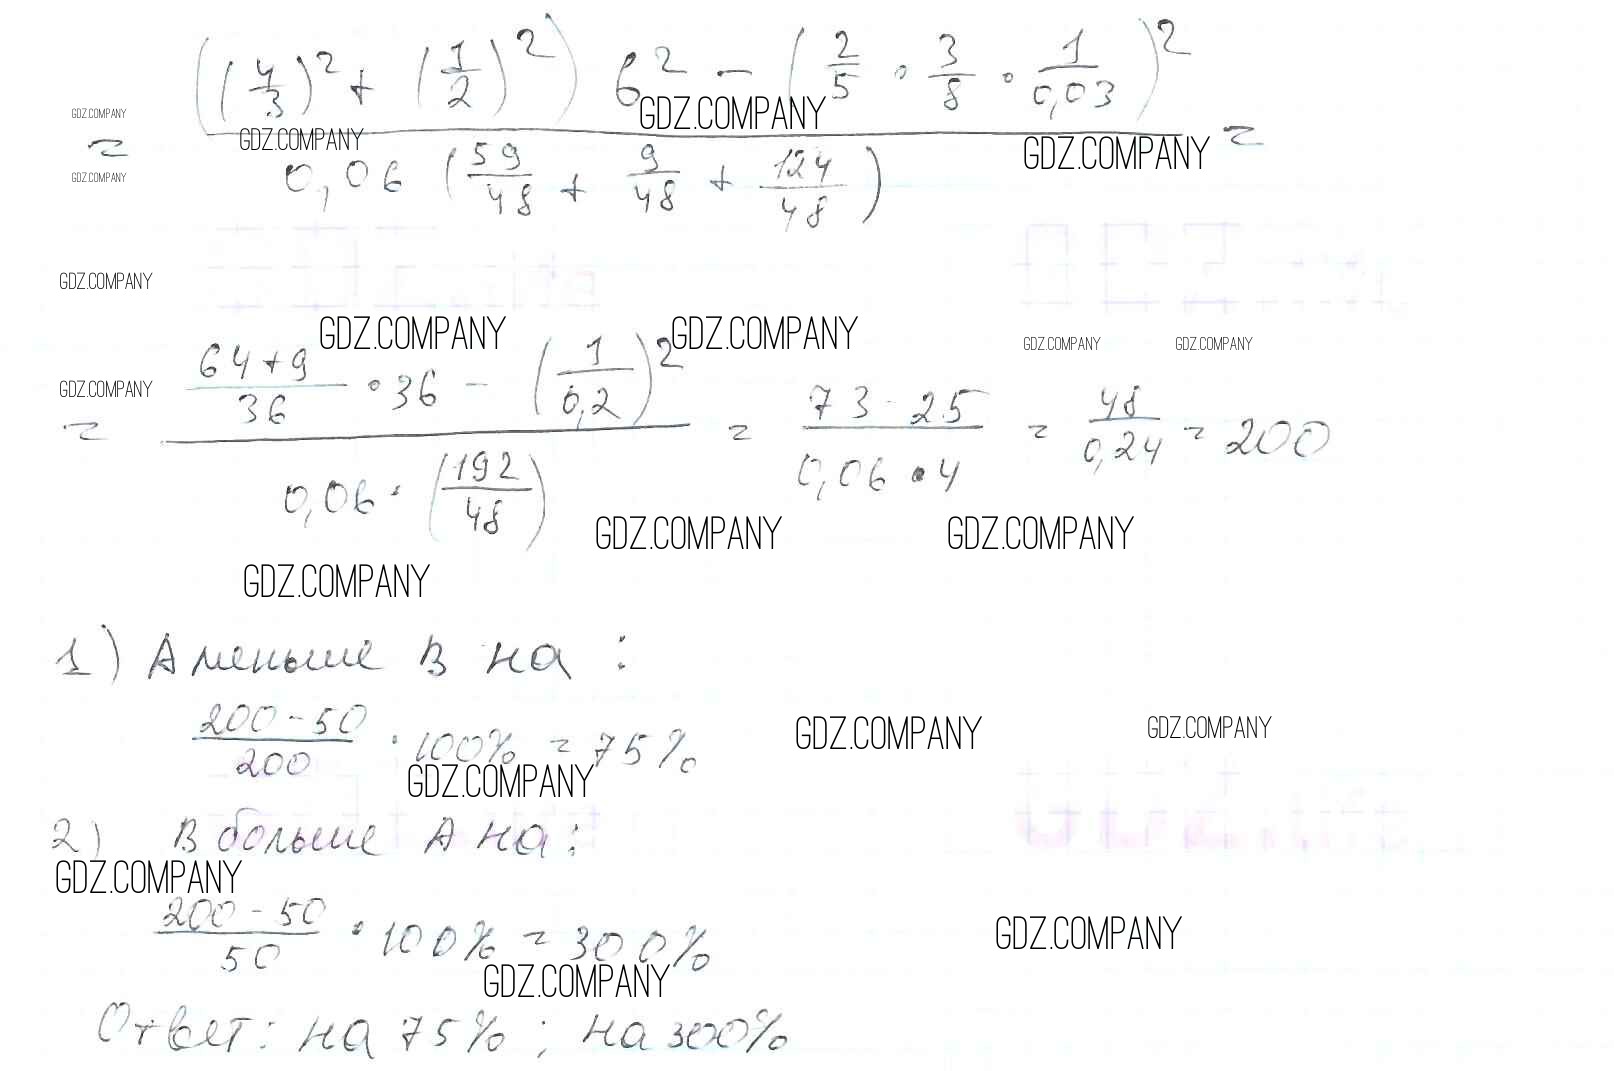 = (((4/3)² + (1/2)²) 6² - (2/5 · 3/8 · 1/0,03)²) / (0,06 (59/48 + 9/48 + 124/48)) =
GDZ.COMPANY GDZ.COMPANY GDZ.COMPANY GDZ.COMPANY
GDZ.COMPANY
GDZ.COMPANY
GDZ.COMPANY GDZ.COMPANY GDZ.COMPANY GDZ.COMPANY
GDZ.COMPANY
= ((64+9)/36 · 36 - (1/0,2)²) / (0,06 · (192/48)) = (73 - 25)/(0,06 · 4) = 48/0,24 = 200
GDZ.COMPANY GDZ.COMPANY
GDZ.COMPANY
1) А меньше В на :
(200-50)/200 · 100% = 75%
GDZ.COMPANY GDZ.COMPANY
GDZ.COMPANY
2) В больше А на:
GDZ.COMPANY
(200-50)/50 · 100% = 300%
GDZ.COMPANY
GDZ.COMPANY
Ответ: на 75% ; на 300%